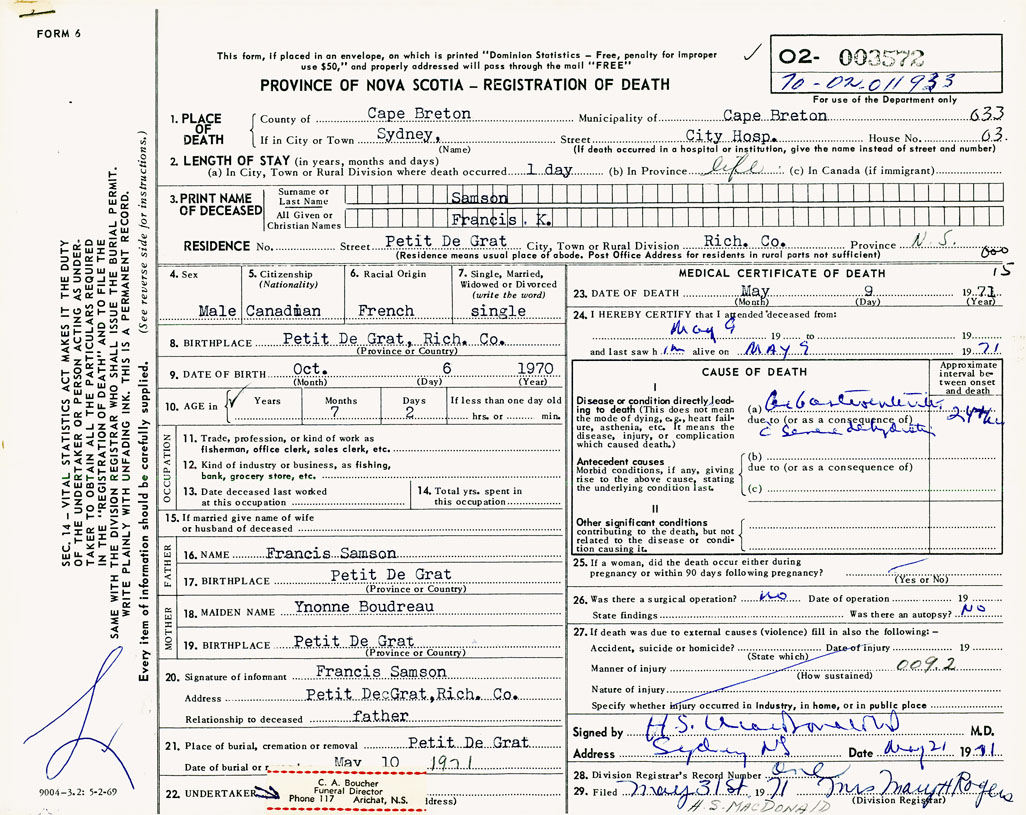 FORM 6
This form, if placed in an envelope, on which is printed "Dominion Statistics – Free, penalty for improper
use $50," and properly addressed will pass through the mail "FREE"
PROVINCE OF NOVA SCOTIA – REGISTRATION OF DEATH
02- 003572
70-02.011933
For use of the Department only
SEC. 14 – VITAL STATISTICS ACT MAKES IT THE DUTY
OF THE UNDERTAKER OR PERSON ACTING AS UNDER-
TAKER TO OBTAIN ALL THE PARTICULARS REQUIRED
IN THE "REGISTRATION OF DEATH" AND TO FILE THE
SAME WITH THE DIVISION REGISTRAR WHO SHALL ISSUE THE BURIAL PERMIT.
WRITE PLAINLY WITH UNFADING INK. THIS IS A PERMANENT RECORD.
Every item of information should be carefully supplied. (See reverse side for instructions.)
1. PLACE OF DEATH
County of Cape Breton Municipality of Cape Breton 633
If in City or Town Sydney, Street City Hosp. House No. 63.
(Name) (If death occurred in a hospital or institution, give the name instead of street and number)
2. LENGTH OF STAY (in years, months and days)
(a) In City, Town or Rural Division where death occurred 1 day (b) In Province life (c) In Canada (if immigrant)
3. PRINT NAME OF DECEASED
Surname or Last Name Samson
All Given or Christian Names Francis. K.
RESIDENCE No. Street Petit De Grat City, Town or Rural Division Rich. Co. Province N.S.
(Residence means usual place of abode. Post Office Address for residents in rural parts not sufficient)
15
4. Sex
Male
5. Citizenship
(Nationality)
Canadian
6. Racial Origin
French
7. Single, Married,
Widowed or Divorced
(write the word)
single
8. BIRTHPLACE Petit De Grat, Rich. Co.
(Province or Country)
9. DATE OF BIRTH Oct. 6 1970
(Month) (Day) (Year)
10. AGE in Years Months Days If less than one day old
7 2 hrs. or min.
OCCUPATION
11. Trade, profession, or kind of work as
fisherman, office clerk, sales clerk, etc.
12. Kind of industry or business, as fishing,
bank, grocery store, etc.
13. Date deceased last worked
at this occupation
14. Total yrs. spent in
this occupation
15. If married give name of wife
or husband of deceased
FATHER
16. NAME Francis Samson
17. BIRTHPLACE Petit De Grat
(Province or Country)
MOTHER
18. MAIDEN NAME Ynonne Boudreau
19. BIRTHPLACE Petit De Grat
(Province or Country)
20. Signature of informant Francis Samson
Address Petit DecGrat, Rich. Co.
Relationship to deceased father
21. Place of burial, cremation or removal Petit De Grat
Date of burial or May 10 1971
22. UNDERTAKER
C. A. Boucher
Funeral Director
Phone 117 Arichat, N.S.
9004-3.2: 5-2-69
MEDICAL CERTIFICATE OF DEATH
23. DATE OF DEATH May 9 1971
(Month) (Day) (Year)
24. I HEREBY CERTIFY that I attended deceased from:
May 9 19 to 19
and last saw him alive on MAY 9 1971
CAUSE OF DEATH
Approximate
interval be-
tween onset
and death
I
Disease or condition directly lead-
ing to death (This does not mean
the mode of dying, e.g., heart fail-
ure, asthenia, etc. It means the
disease, injury, or complication
which caused death.)
(a)
due to (or as a consequence of)
Severe dehydration
Antecedent causes
Morbid conditions, if any, giving
rise to the above cause, stating
the underlying condition last.
(b)
due to (or as a consequence of)
(c)
II
Other significant conditions
contributing to the death, but not
related to the disease or condi-
tion causing it.
25. If a woman, did the death occur either during
pregnancy or within 90 days following pregnancy?
(Yes or No)
26. Was there a surgical operation? NO Date of operation 19
State findings Was there an autopsy? NO
27. If death was due to external causes (violence) fill in also the following: –
Accident, suicide or homicide? Date of injury 19
(State which)
Manner of injury 009.2
(How sustained)
Nature of injury
Specify whether injury occurred in industry, in home, or in public place
Signed by H.S. MacDonald M.D.
Address Sydney NS Date May 21 1971
28. Division Registrar's Record Number one
29. Filed May 31st. 1971 Mrs Mary H Rogers
(Division Registrar)
H.S. MACDONALD